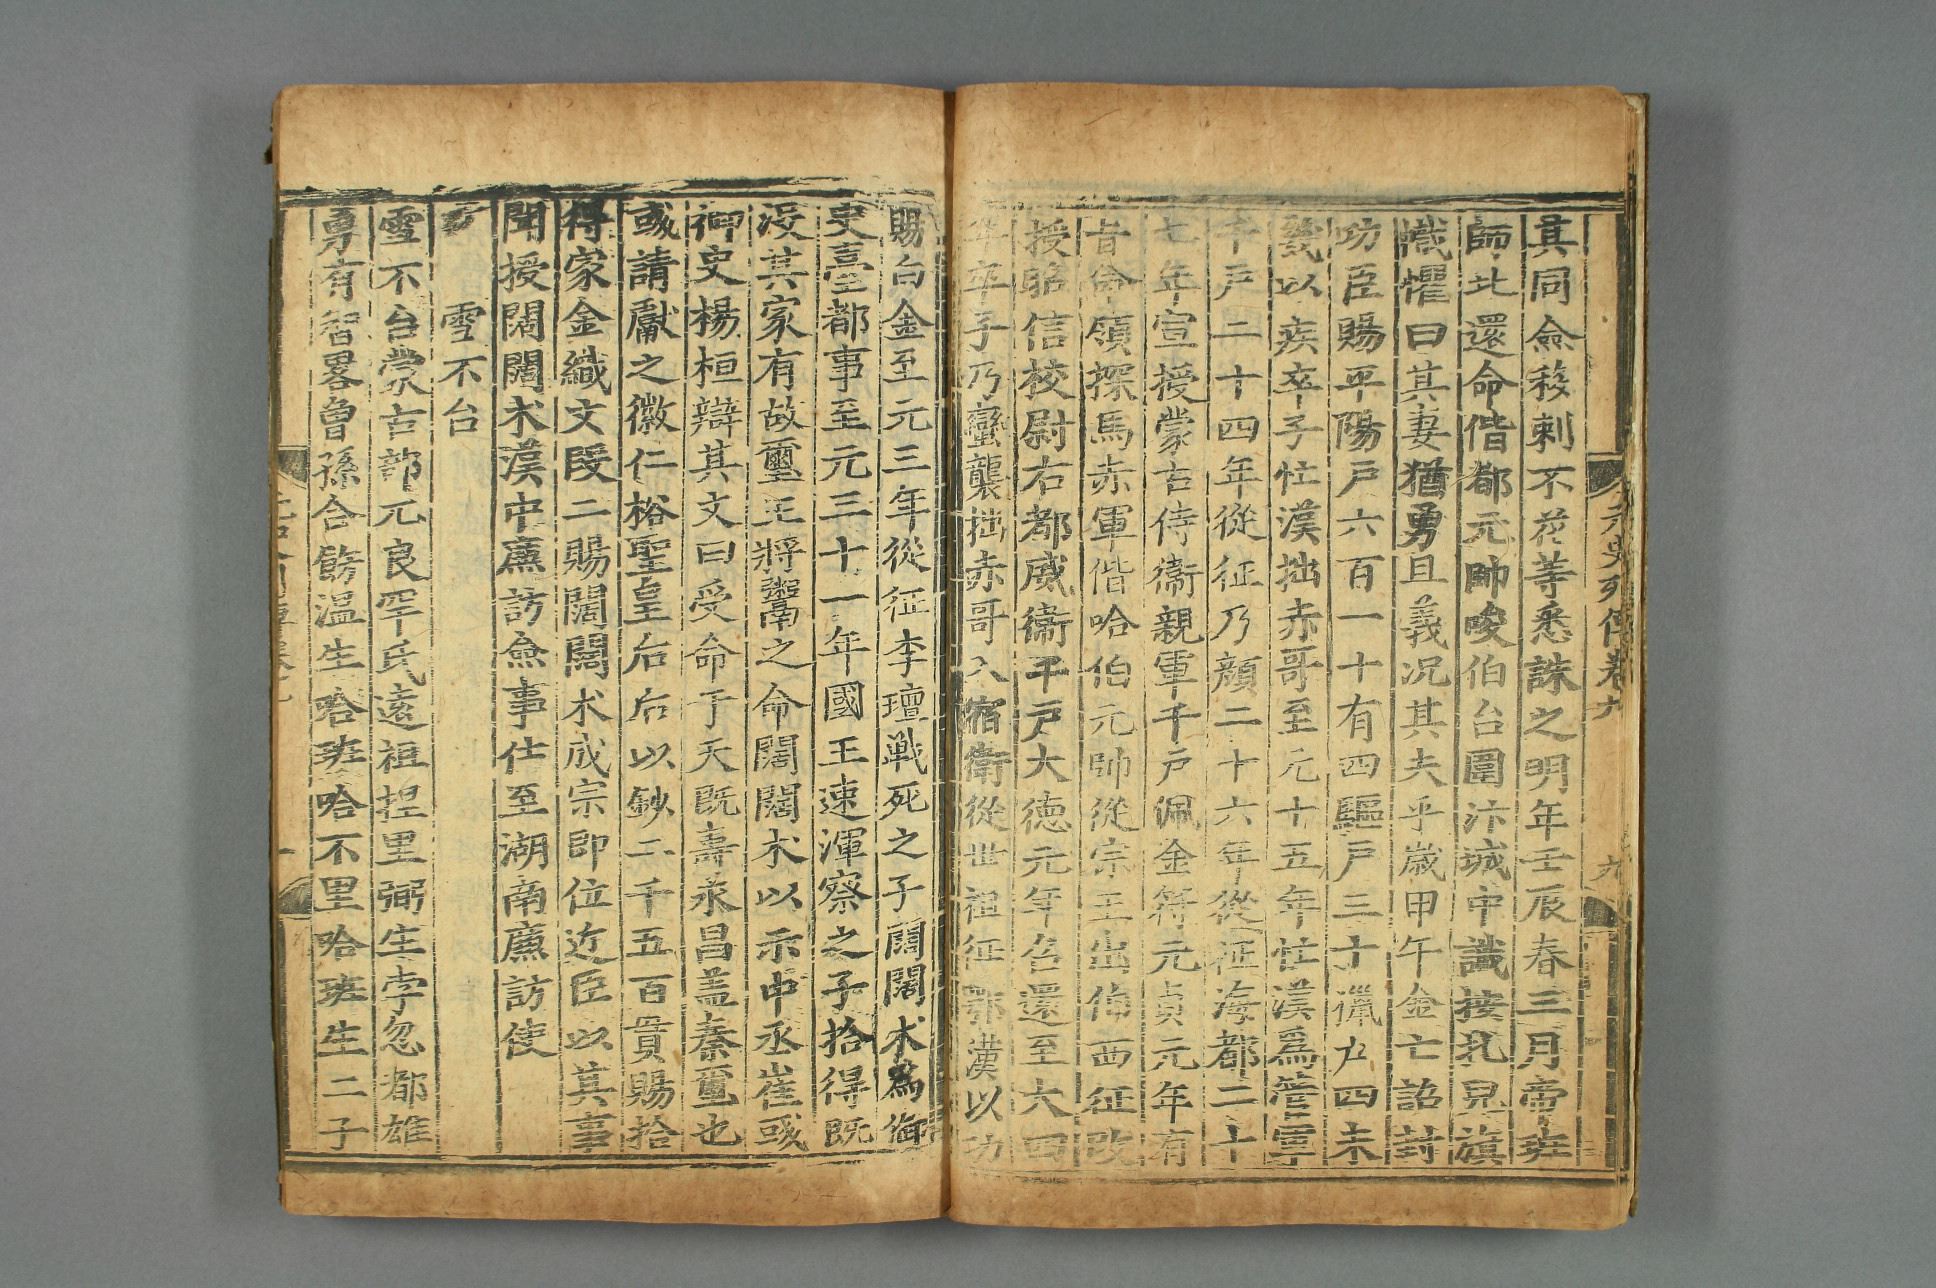 元史列傳卷九
九
其同僉移剌不花等悉誅之明年壬辰春三月帝班
師北還命偕都元帥唆伯台圍汴城中識按札兒旗
幟懼曰其妻猶勇且義况其夫乎歲甲午金亡詔封
功臣賜平陽戶六百一十有四驅戶三十獵戶四未
幾以疾卒子忙漢拙赤哥至元十五年忙漢爲管軍
千戶二十四年從征乃顏二十六年從征海都二十
七年宣授蒙古侍衛親軍千戶佩金符元貞元年有
旨僉領探馬赤軍偕哈伯元帥從宗王出伯西征改
授昭信校尉右都威衛千戶大德元年名還至大四
年卒子乃蠻襲拙赤哥入宿衛從世祖征鄂漢以功
賜白金至元三年從征李璮戰死之子闊闊朮爲御
史臺都事至元三十一年國王速渾察之子拾得既
沒其家有故璽王將鬻之命闊闊朮以示中丞崔彧
御史楊桓辯其文曰受命于天既壽永昌盖秦璽也
彧請獻之徽仁裕聖皇后后以鈔二千五百貫賜拾
得家金織文段二賜闊闊朮成宗即位近臣以其事
聞授闊闊朮漢中廉訪僉事仕至湖南廉訪使
雪不台
雪不台蒙古部元良罕氏遠祖捏里弼生孛忽都雄
勇有智畧曾孫合飭溫生哈班哈不里哈班生二子